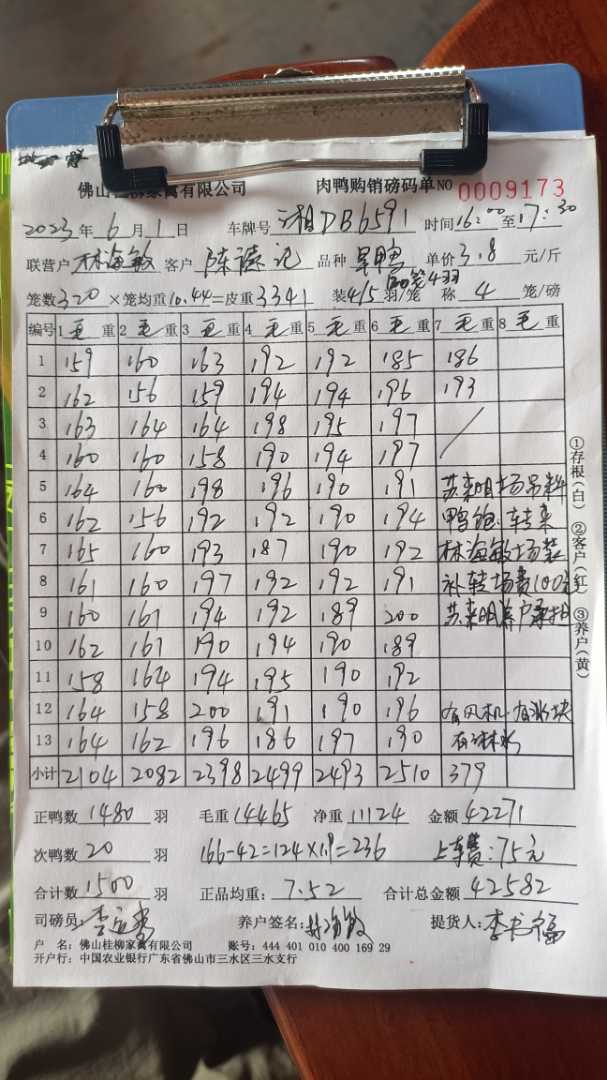 佛山桂柳家禽有限公司 肉鸭购销磅码单 NO 0009173
2023年6月1日 车牌号 湘DB6591 时间16:00至17:30
联营户 林海敏 客户 陈 记 品种 旱鸭 单价3.8元/斤
80笼4羽
笼数320×笼均重10.44=皮重3341 装4/5羽/笼 称4笼/磅
编号 1毛重 2毛重 3毛重 4毛重 5毛重 6毛重 7毛重 8毛重
1 159 160 163 192 192 185 186
2 162 156 159 194 194 196 193
3 163 164 164 198 195 197 /
4 160 160 158 190 194 197
5 164 160 198 196 190 191 苏来明场吊料
6 162 156 192 192 190 194 鸭 转来
7 165 160 193 187 190 192 林海敏场装
8 161 160 197 192 192 191 补转场费100元
9 160 161 194 192 189 200 苏来明养户承担
10 162 161 190 194 190 189
11 158 164 194 195 190 192
12 164 158 200 191 190 196 有风机 有水块
13 164 162 196 186 197 190 有淋水
小计 2104 2082 2398 2499 2493 2510 379
①存根(白) ②客户(红) ③养户(黄)
正鸭数1480羽 毛重14465 净重11124 金额42271
次鸭数20羽 166-42=124×1.9=236 上车费:75元
合计数1500羽 正品均重:7.52 合计总金额42582
司磅员: 养户签名:林海敏 提货人:李书福
户 名:佛山桂柳家禽有限公司 账号:444 401 010 400 169 29
开户行:中国农业银行广东省佛山市三水区三水支行